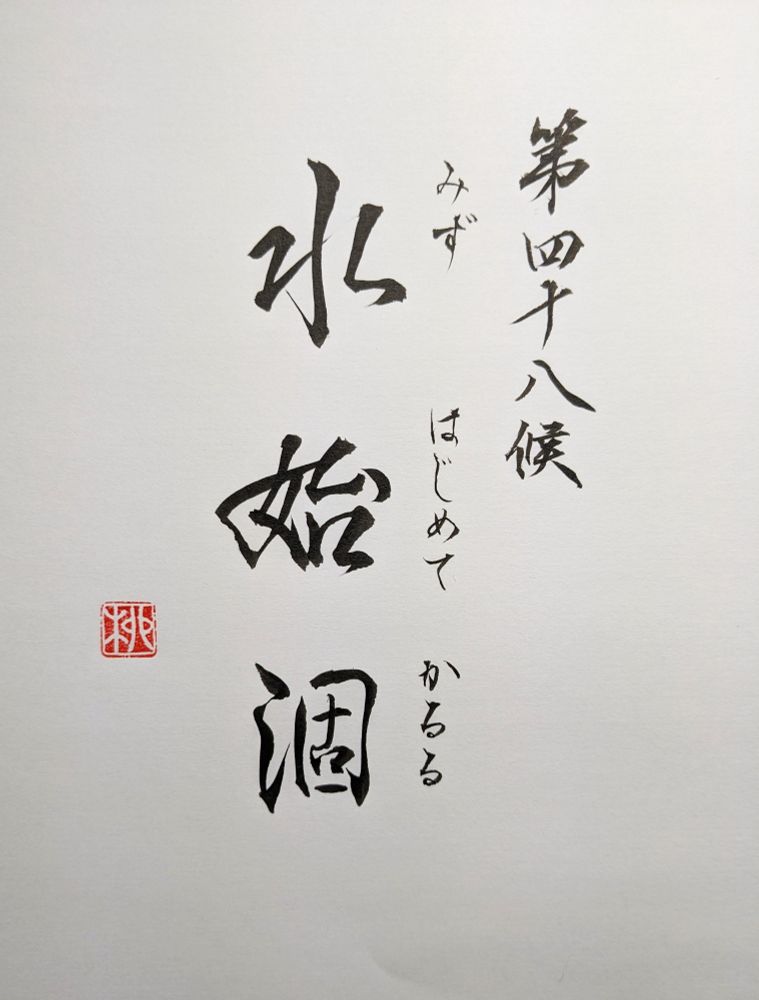 第四十八候
みず はじめて かるる
水始涸
桃